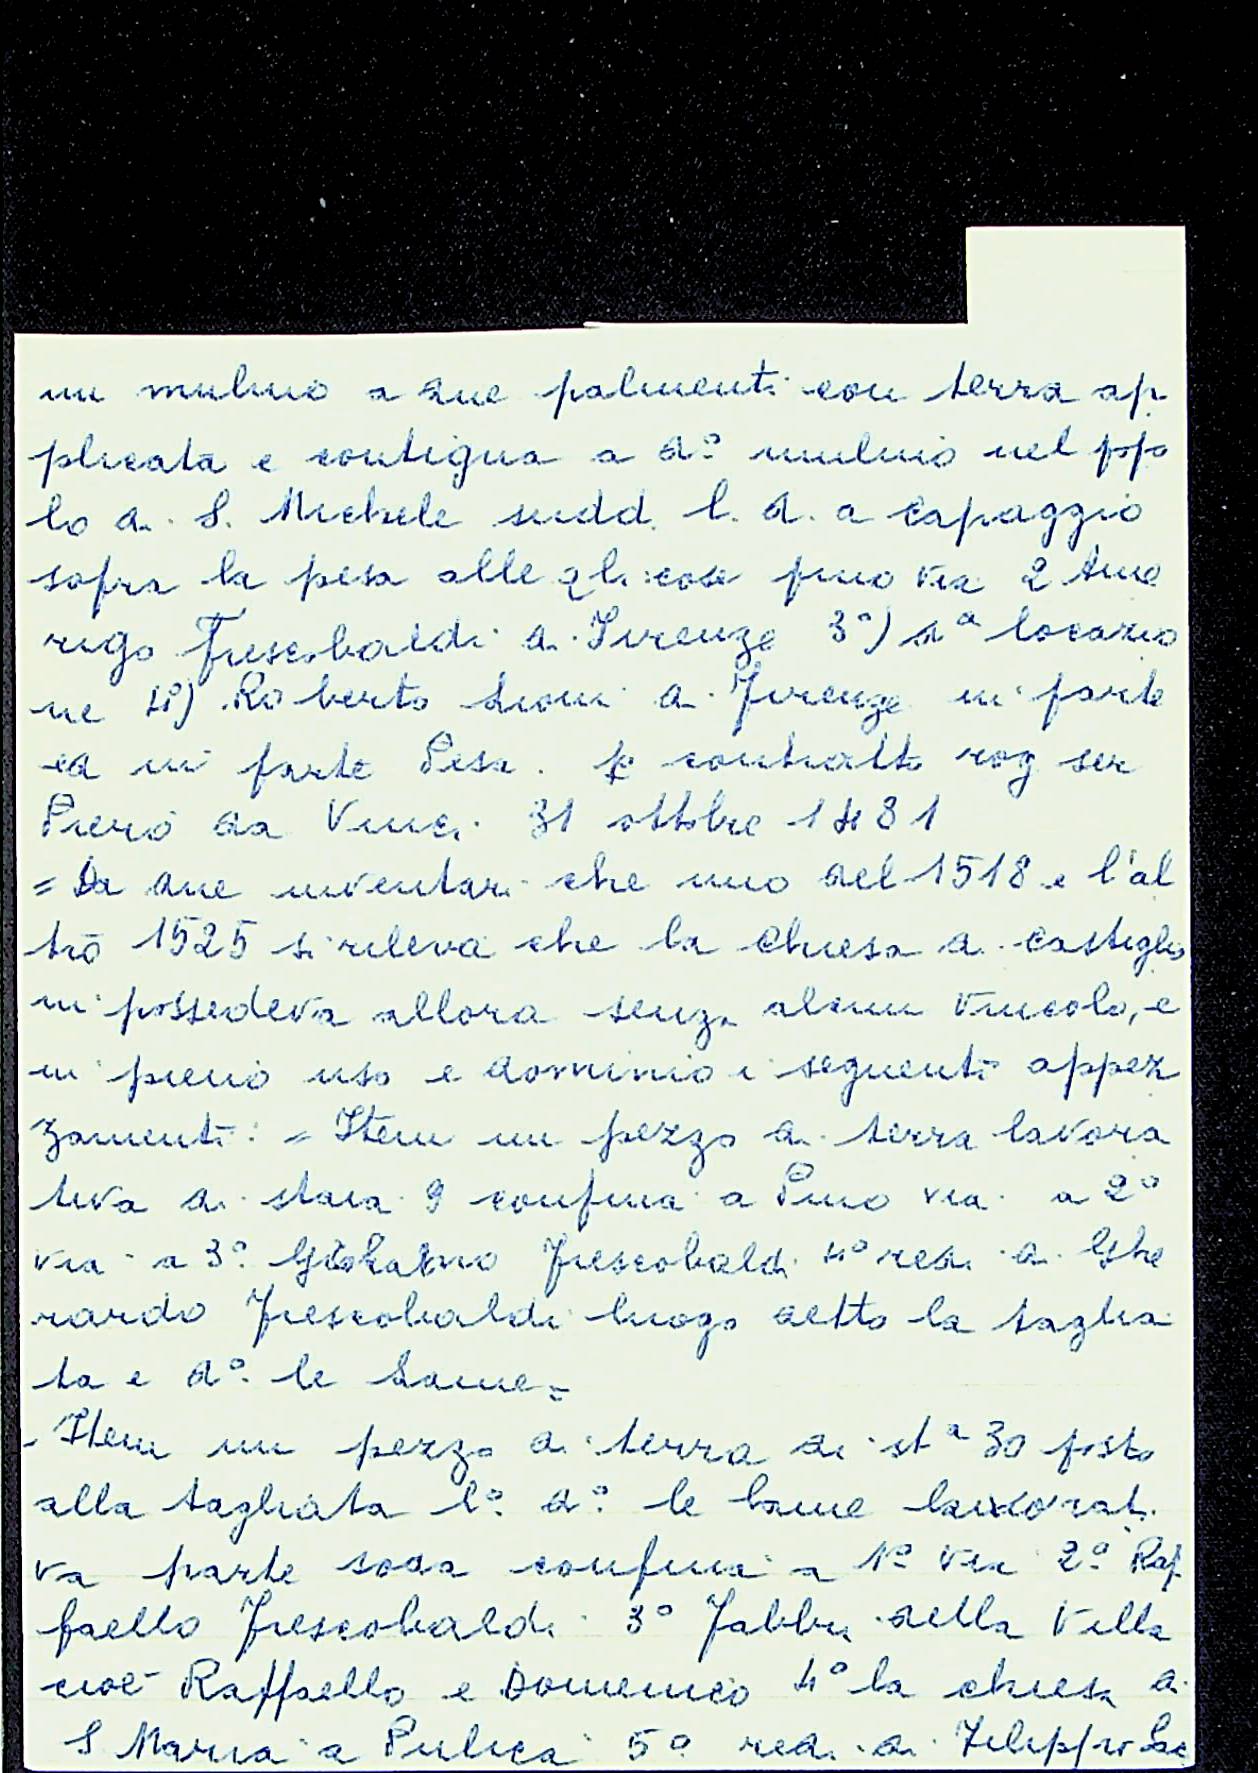 un mulino a due palmenti con terra ap
plicata e contigua a d.º mulino nel popo
lo di S. Michele sudd. l. d. a Capaggio
sopra la pesa alle qli: cose pmo via 2 Ame
rigo Frescobaldi di Firenze 3º) dª locazio
ne 4º) Roberto Lioni di Firenze in parte
ed in parte Pesa. p contratto rog ser
Piero da Vinci 31 ottobre 1481
= Da due inventari che uno del 1518 e l'al
tro 1525 si rileva che la Chiesa di Castiglio
ni possedeva allora senza alcun vincolo, e
in pieno uso e dominio i seguenti appez
zamenti: = Item un pezzo di terra lavora
tiva di staia 9 confina a Pmo via a 2º
via a 3º Frescobaldi 4º redi di Ghe
rardo Frescobaldi luogo detto la taglia
ta e dº. le Lame =
- Item un pezzo di terra di stª 30 posto
alla tagliata lº. dº. le lame lavorati
va parte soda confina a 1º via 2º Raf
faello Frescobaldi 3º Fabbri della Villa
cioè Raffaello e Domenico 4º la chiesa di
S Maria a Pulica 5º redi di Filippo